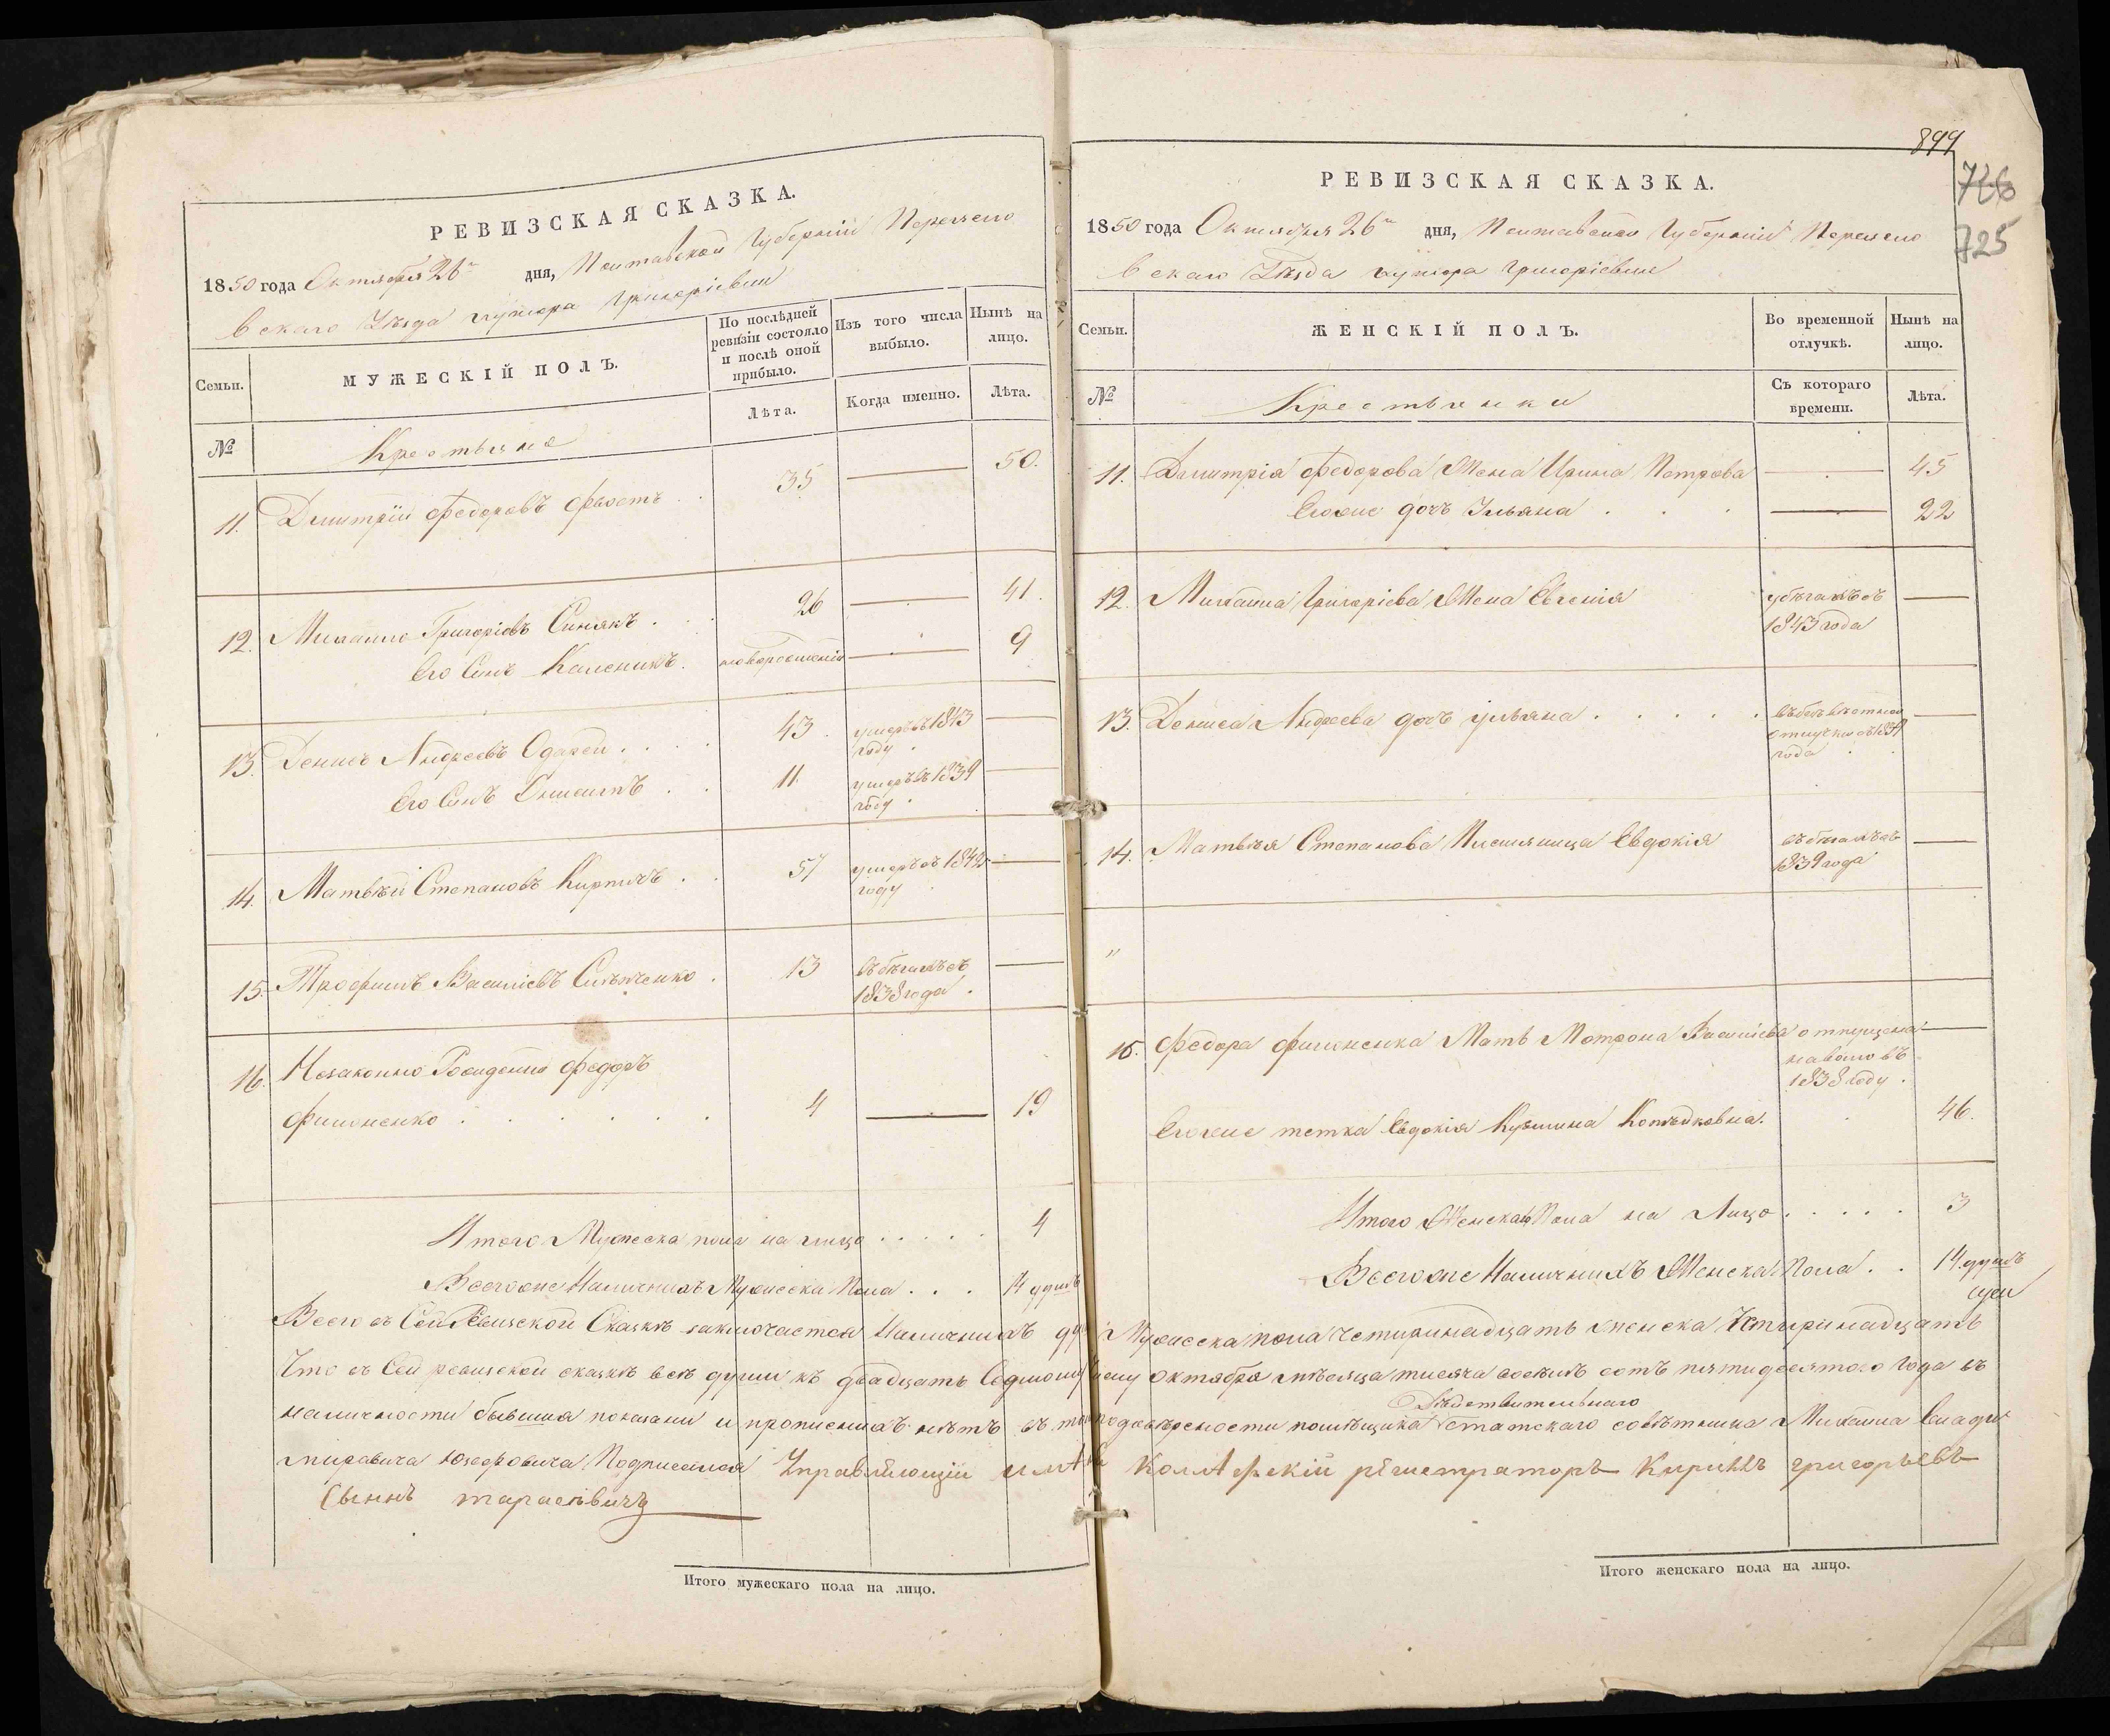 РЕВИЗСКАЯ СКАЗКА.
1850 года Октября 26го дня, Полтавской Губерніи Переясло
вскаго Уѣзда хутора Григоріевки
Семьи.
МУЖЕСКІЙ ПОЛЪ.
По послѣдней ревизіи состояло и послѣ оной прибыло.
Изъ того числа выбыло.
Нынѣ на лицо.
№
Лѣта.
Когда именно.
Лѣта.
Крестьяне
11. Дмитрій Федоровъ 35 50.
12. Михайло Григоріевъ Синякъ 26 41.
Его Сынъ Каленикъ новорожденный 9
13. Денисъ Андреевъ 43 умеръ въ 1843 году
Его Сынъ Онисимъ 11 умеръ въ 1839 году
14. Матвѣй Степановъ Кирпичъ 57 умеръ въ 1842 году
15. Трофимъ Василіевъ 13 въ бѣгахъ съ 1838 года
16. Незаконно Рожденный Федоръ
Филоненко 4 19
Итого Мужеска пола на лицо 4
Всего же Наличныхъ Мужеска Пола 14 душъ
899
726
725
РЕВИЗСКАЯ СКАЗКА.
1850 года Октября 26го дня, Полтавской Губерніи Переясло
вскаго Уѣзда хутора Григоріевки
Семьи.
ЖЕНСКІЙ ПОЛЪ.
Во временной отлучкѣ.
Нынѣ на лицо.
№
Съ котораго времени.
Лѣта.
Крестьянки
11. Дмитрія Федорова Жена Ирина Петрова 45
Его же дочь Ульяна 22
12. Михайла Григоріева Жена Евгенія въ бѣгахъ съ 1843 года
13. Дениса Андреева дочь Ульяна въ безвѣстной отлучкѣ съ 1839 года
14. Матвѣя Степанова Племяница Евдокія въ бѣгахъ съ 1839 года
"
16. Федора Филоненка Мать Мотрона Василіева отпущена на волю въ 1838 году.
Его же тетка Евдокія Кузмина 46.
Итого Женска Пола на Лицо 3
Всего же Наличныхъ Женска Пола 14 душъ
Всего въ Сей Ревизской Сказкѣ заключается Наличныхъ душъ Мужеска пола четырнадцать женска Четырнадцать
Что въ Сей ревизской сказкѣ всѣ души къ двадцать Седмому октября мѣсяца тысяча восемь сотъ пятидесятого Года въ
наличности бывшия показаны и прописныхъ нѣтъ въ том по довѣренности помѣщика Дѣйствительнаго Статскаго совѣтника Михайла Влади
мировича Юзефовича Подписался Управляющій Коллежскій регистраторъ Кирилъ григорьевъ
Сынъ тарасѣвичъ
Итого мужескаго пола на лицо.
Итого женскаго пола на лицо.